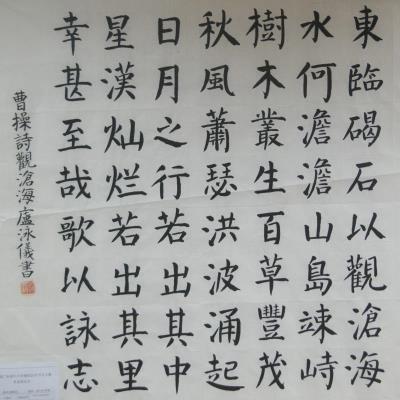 東臨碣石以觀滄海
水何澹澹山島竦峙
樹木叢生百草豐茂
秋風蕭瑟洪波涌起
日月之行若出其中
星漢灿烂若出其里
幸甚至哉歌以詠志
曹操詩觀滄海盧泳儀書